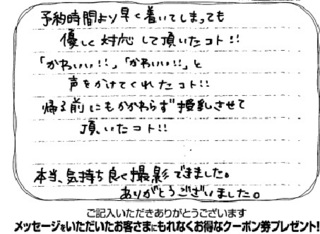 予約時間より早く着いてしまっても
優しく対応して頂いたコト!!
「かわいい!!」「かわいい!!」と
声をかけてくれたコト!!
帰る前にもかかわらず授乳させて
頂いたコト!!
本当、気持ち良く撮影できました。
ありがとうございました。
ご記入いただきありがとうございます
メッセージをいただいたお客さまにもれなくお得なクーポン券プレゼント!